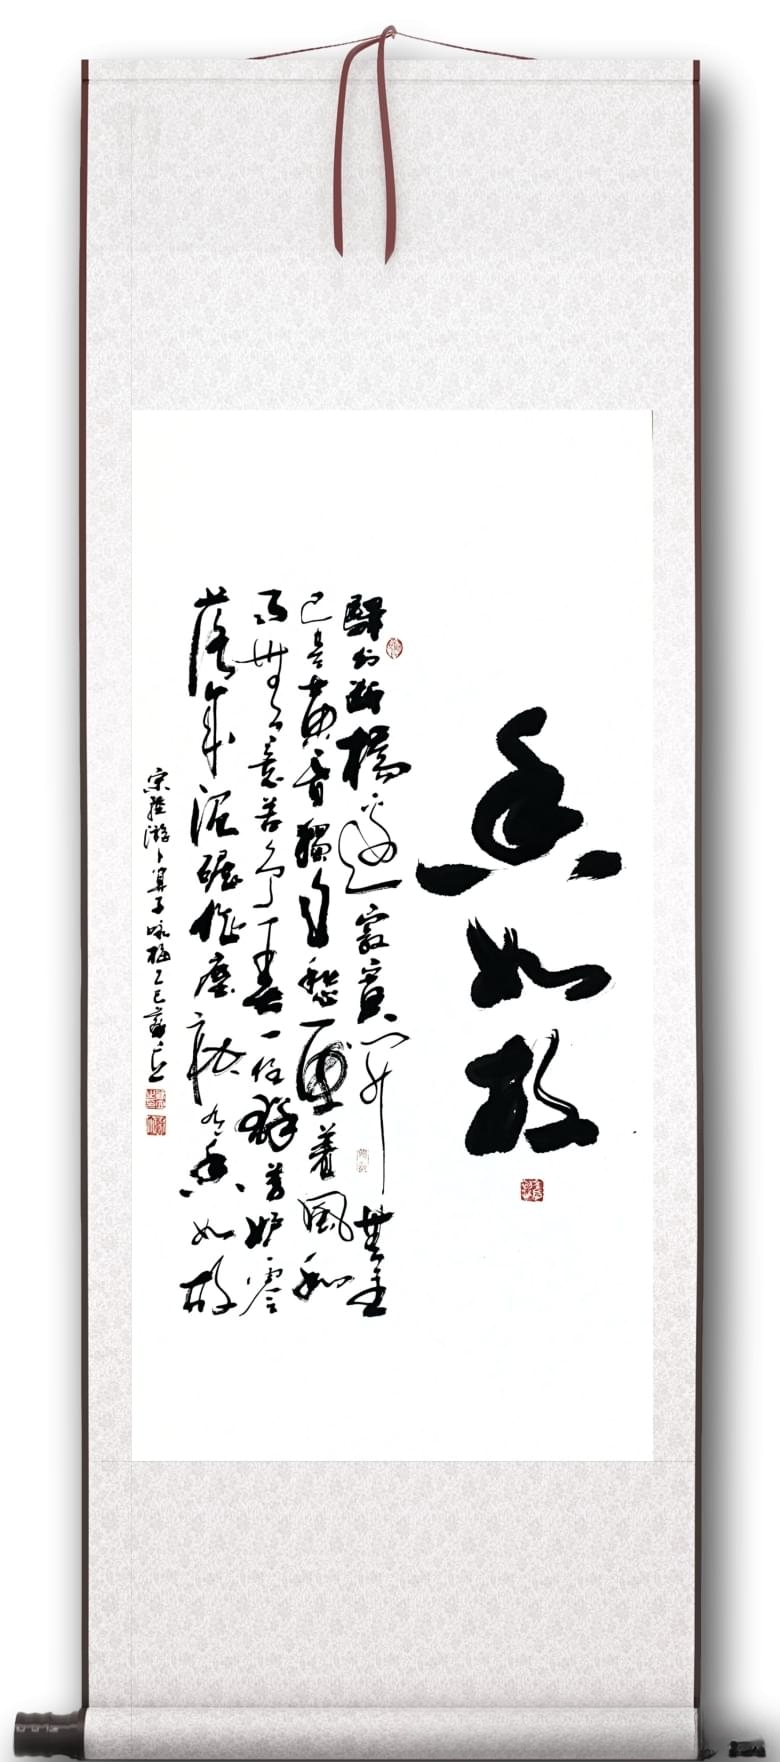 香如故
驛外斷橋邊寂寞開無主
已是黄昏獨自愁更著風和
雨無意苦爭春一任群芳妒零
落成泥碾作塵祇有香如故
宋陸游卜算子咏梅乙巳